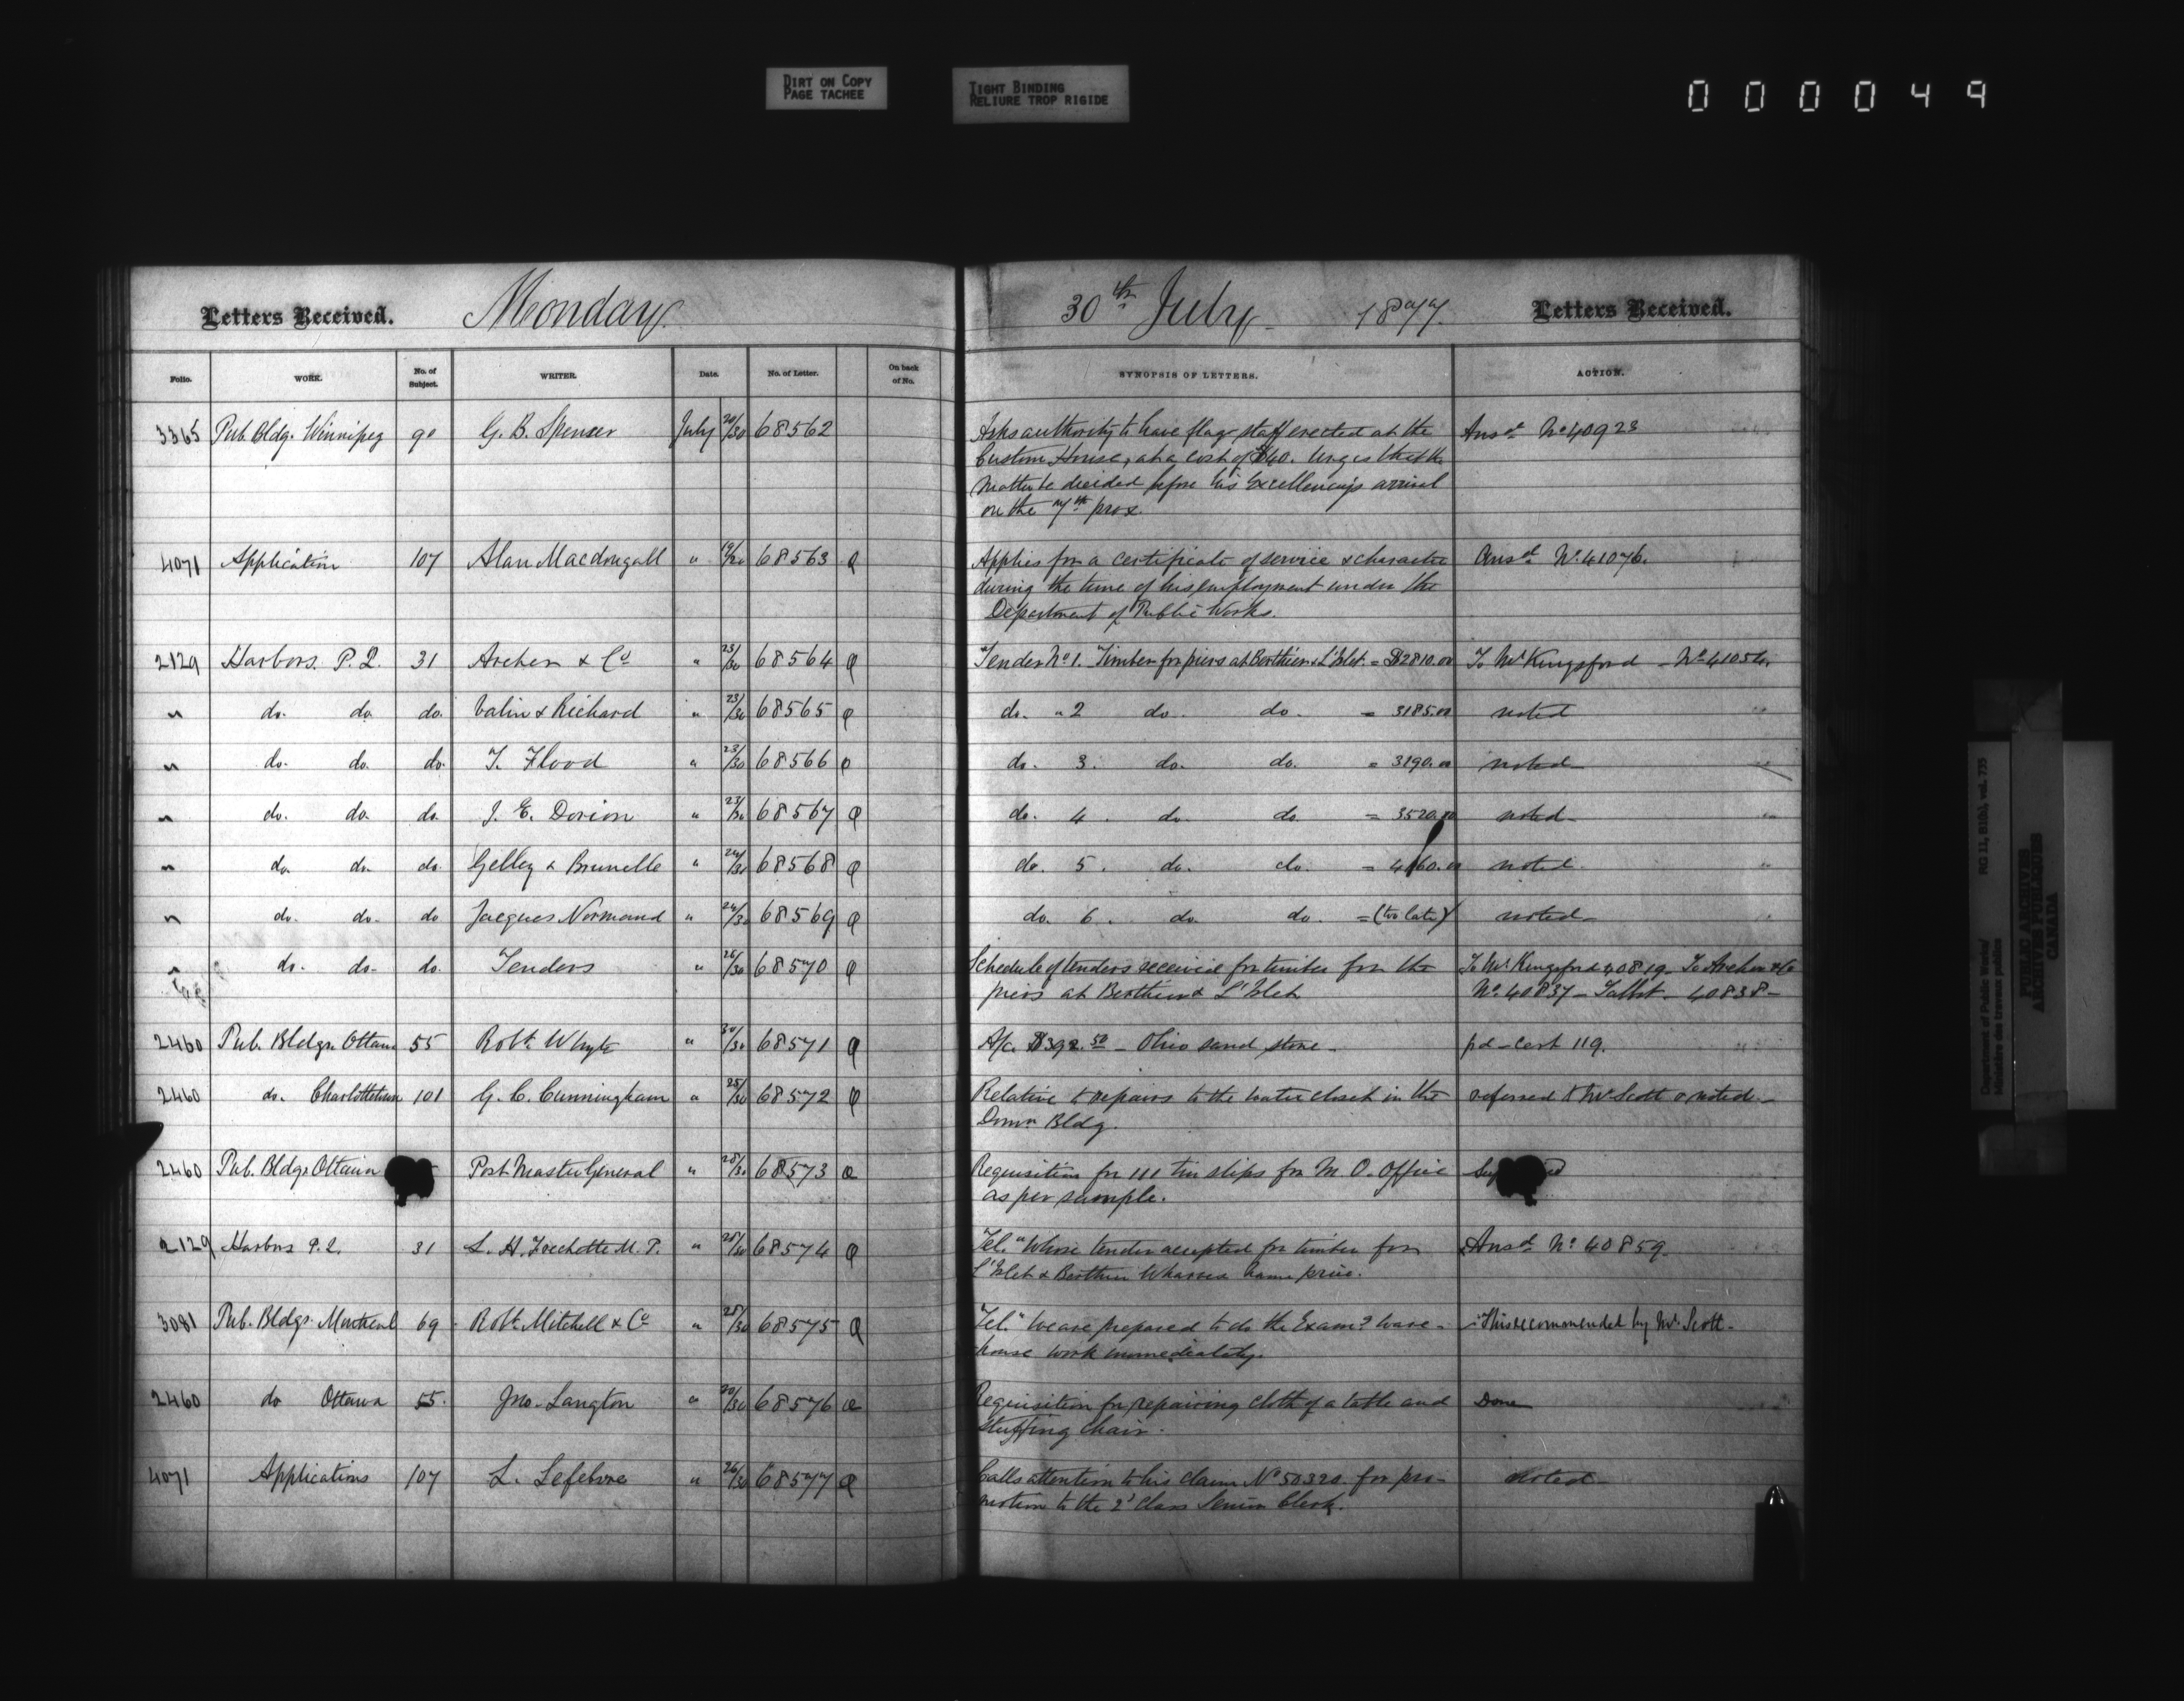 DIRT ON COPY
PAGE TACHEE
TIGHT BINDING
RELIURE TROP RIGIDE
000049
Letters Received. Monday 30th July 1877. Letters Received.
Folio. WORK. No. of Subject. WRITER. Date. No. of Letter. On back of No. SYNOPSIS OF LETTERS. ACTION.
3365 Pub. Bldg. Winnipeg 90 G. B. Spencer July 20/30 68562 Asks authority to have flag staff erected at the Ansd No 40923
Custom House, at a cost of $40. Urges that the
matter be decided before his Excellency's arrival
on the 7th prox.
4071 Application 107 Alan Macdougall " 68563 Q Applies for a certificate of service & character Ansd No. 41076.
during the time of his employment under the
Department of Public Works.
2129 Harbors. P. Q. 31 Archer & Co " 23/30 68564 Q Tender No 1. Timber for piers at Berthier & L'Islet. = $2810.00 To Mr Kingsford - No 41054
" do. do. do. Valin & Richard " 23/30 68565 Q do. " 2 do. do. = 3185.00 noted
" do. do. do. T. Flood " 23/30 68566 Q do. 3. do. do. = 3190.00 noted
" do. do. do. J. E. Dorion " 23/30 68567 Q do. 4. do. do. = 3520.00 noted
" do. do. do. Gelley & Brunelle " 24/30 68568 Q do. 5. do. do. = 4160.00 noted
" do. do. do Jacques Normand " 24/30 68569 Q do. 6. do. do. = (too late) noted
" do. do. do. Tenders " 26/30 68570 Q Schedule of tenders received for timber for the To Mr Kingsford 40819 - To Archer & Co
piers at Berthier & L'Islet No. 40837 - Talbot - 40838 -
2460 Pub. Bldgs. Ottawa 55 Robt. Whyte " 30/30 68571 Q A/c. $392.50 - Ohio sand stone - pd - cert 119.
2460 do. Charlottetown 101 G. C. Cunningham " 25/30 68572 Q Relative to repairs to the water closet in the referred to Mr Scott & noted -
Domn Bldg.
2460 Pub. Bldgs Ottawa Post Master General " 28/30 68573 Q Requisition for 111 tin slips for M. O. Office
as per sample.
2129 Harbors P.Q. 31 L. H. Frechette M.P. " 28/30 68574 Q Tel. "Whose tender accepted for timber for Ansd No. 40859
L'Islet & Berthier Wharves name price.
3081 Pub. Bldgs. Montreal 69 Robt. Mitchell & Co " 28/30 68575 Q Tel." We are prepared to do the Examg ware- This recommended by Mr. Scott -
house work immediately.
2460 do Ottawa 55. Jno. Langton " 30/30 68576 Q Requisition for repairing cloth of a table and Done
stuffing chair.
4071 Applications 107 L. Lefebvre " 26/30 68577 Q Calls attention to his claim No 50320. for pro- noted
motion to the 2d class Senior Clerk.
Department of Public Works/
Ministère des travaux publics
RG 11, B1(b), vol. 735
PUBLIC ARCHIVES
ARCHIVES PUBLIQUES
CANADA